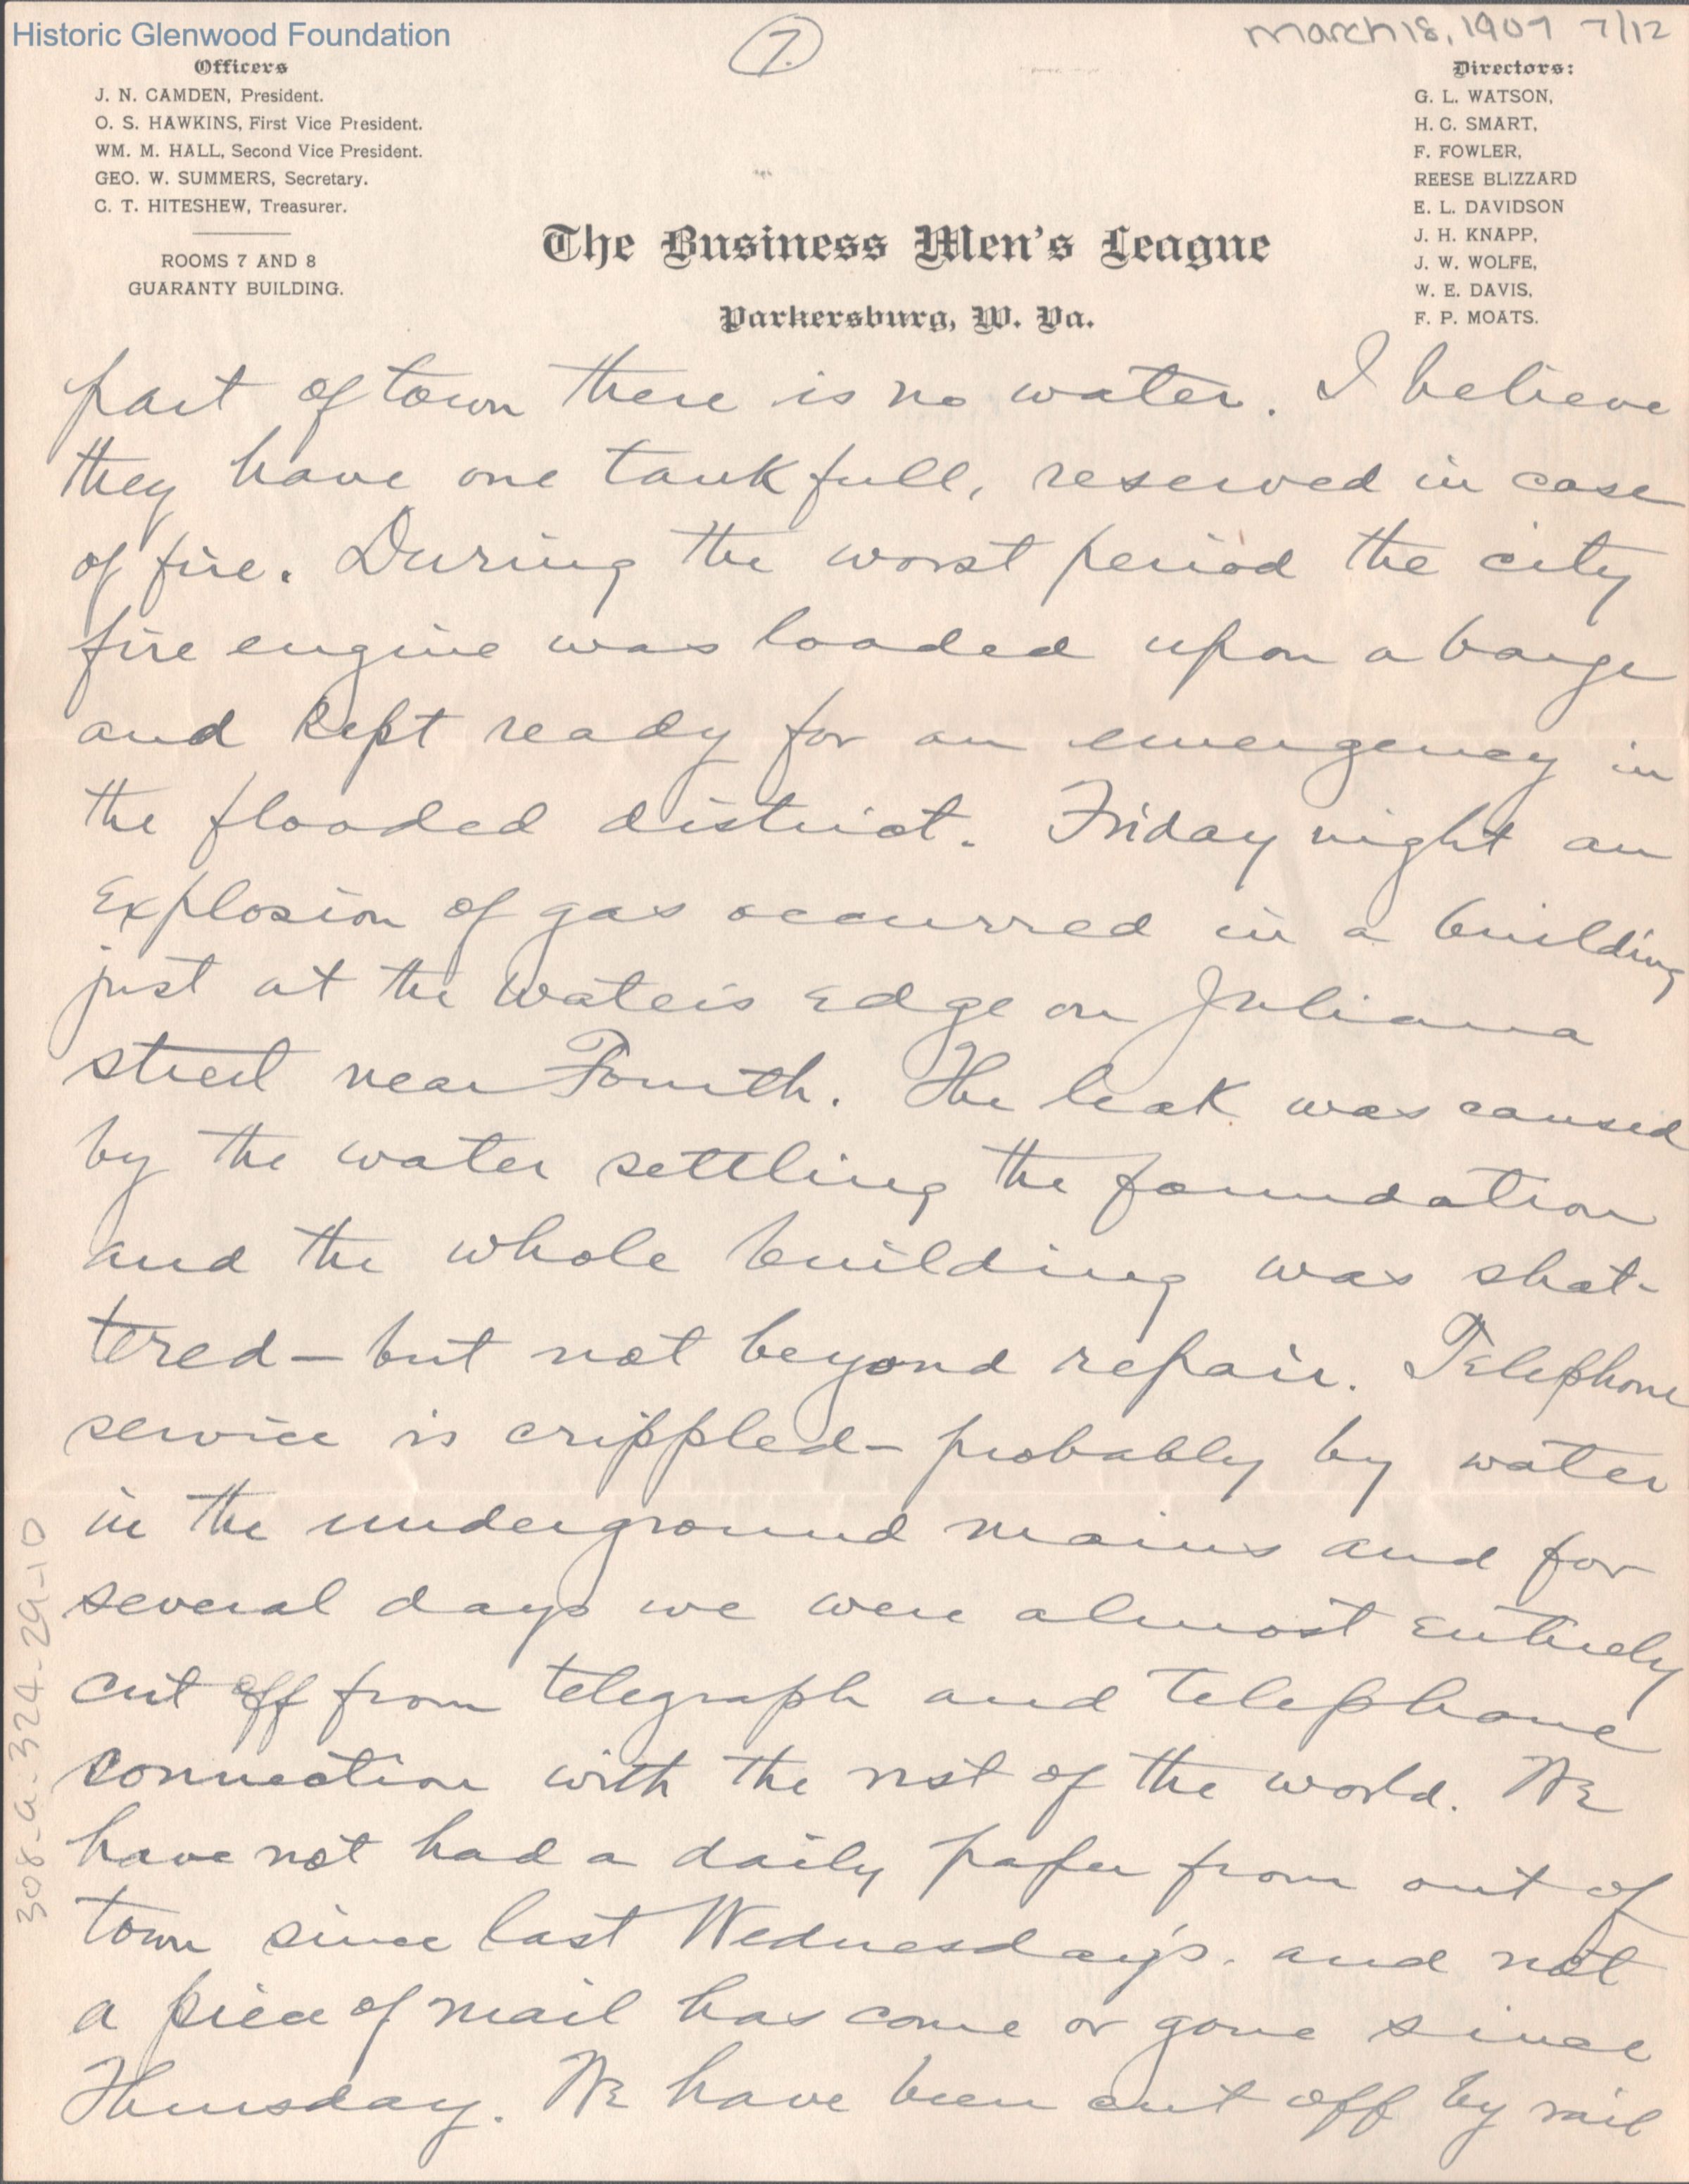 Historic Glenwood Foundation
7.
March 18, 1907 7/12
Officers
J. N. CAMDEN, President.
O. S. HAWKINS, First Vice President.
WM. M. HALL, Second Vice President.
GEO. W. SUMMERS, Secretary.
C. T. HITESHEW, Treasurer.
ROOMS 7 AND 8
GUARANTY BUILDING.
The Business Men's League
Parkersburg, W. Va.
Directors:
G. L. WATSON,
H. C. SMART,
F. FOWLER,
REESE BLIZZARD
E. L. DAVIDSON
J. H. KNAPP,
J. W. WOLFE,
W. E. DAVIS,
F. P. MOATS.
part of town there is no water. I believe
they have one tank full, reserved in case
of fire. During the worst period the city
fire engine was loaded upon a barge
and kept ready for an emergency in
the flooded district. Friday night an
explosion of gas occurred in a building
just at the water's edge on Juliana
street near Fourth. The leak was caused
by the water settling the foundation
and the whole building was shat-
tered – but not beyond repair. Telephone
service is crippled – probably by water
in the underground mains and for
several days we were almost entirely
cut off from telegraph and telephone
connection with the rest of the world. We
have not had a daily paper from out of
town since last Wednesday's. and not
a piece of mail has come or gone since
Thursday. We have been cut off by rail
308-a-324-29-10